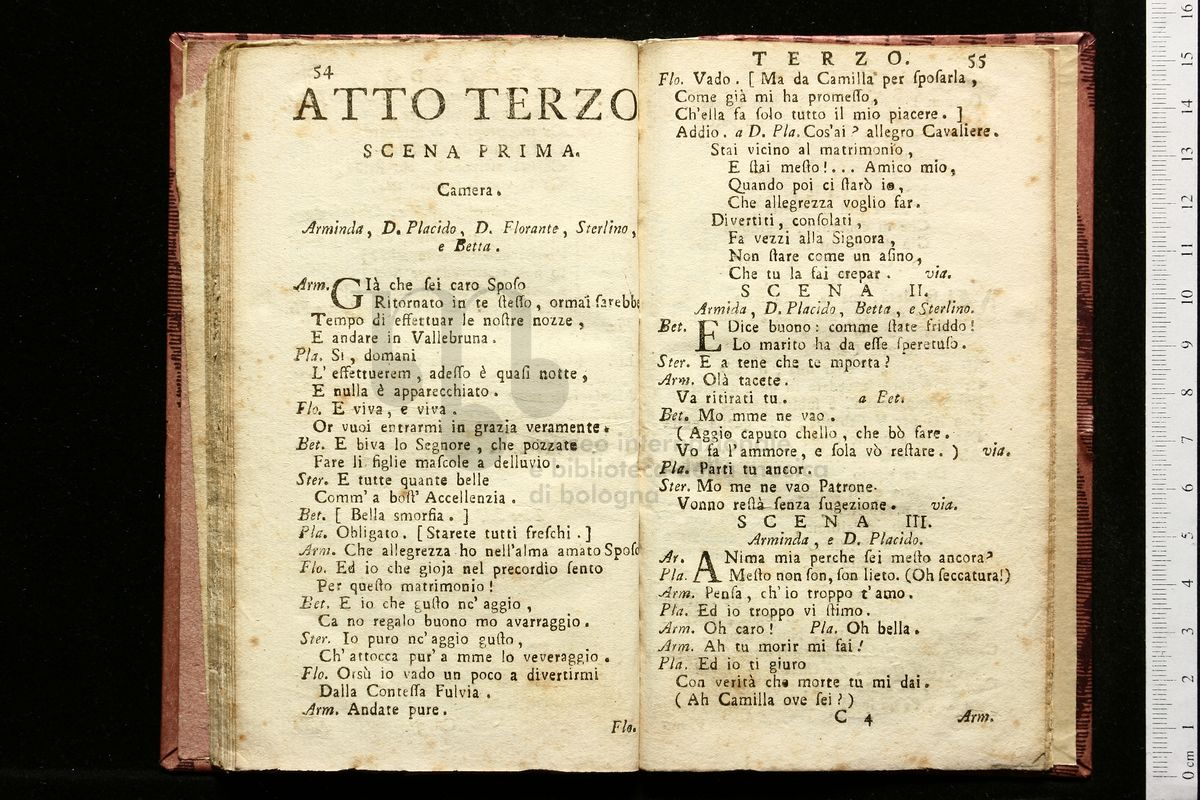 54
ATTO TERZO
SCENA PRIMA.
Camera.
Arminda, D. Placido, D. Florante, Sterlino,
e Betta.
Arm. GIà che ſei caro Spoſo
Ritornato in te ſteſſo, ormai ſarebbe
Tempo di effettuar le noſtre nozze,
E andare in Vallebruna.
Pla. Sì, domani
L' effettuerem, adeſſo è quaſi notte,
E nulla è apparecchiato.
Flo. E viva, e viva.
Or vuoi entrarmi in grazia veramente.
Bet. E biva lo Segnore, che pozzate
Fare li figlie maſcole a delluvio.
Ster. E tutte quante belle
Comm' a boſt' Accellenzia.
Bet. [ Bella smorfia. ]
Pla. Obligato. [ Starete tutti freſchi. ]
Arm. Che allegrezza ho nell'alma amato Spoſo
Flo. Ed io che gioja nel precordio ſento
Per queſto matrimonio!
Bet. E io che guſto nc' aggio,
Ca no regalo buono mo avarraggio.
Ster. Io puro nc' aggio guſto,
Ch' attocca pur' a mme lo veveraggio.
Flo. Orsù io vado un poco a divertirmi
Dalla Conteſſa Fulvia.
Arm. Andate pure.
Flo.
TERZO. 55
Flo. Vado. [ Ma da Camilla per ſpoſarla,
Come già mi ha promeſſo,
Ch'ella fa ſolo tutto il mio piacere. ]
Addio. a D. Pla. Cos'ai? allegro Cavaliere.
Stai vicino al matrimonio,
E ſtai meſto!... Amico mio,
Quando poi ci ſtarò io,
Che allegrezza voglio far.
Divertiti, conſolati,
Fa vezzi alla Signora,
Non ſtare come un aſino,
Che tu la fai crepar. via.
SCENA II.
Armida, D. Placido, Betta, e Sterlino.
Bet. E Dice buono: comme ſtate friddo!
Lo marito ha da eſſe ſperetuſo.
Ster. E a tene che te mporta?
Arm. Olà tacete.
Va ritirati tu. a Bet.
Bet. Mo mme ne vao.
( Aggio caputo chello, che bò fare.
Vo fa l'ammore, e ſola vò reſtare. ) via.
Pla. Parti tu ancor.
Ster. Mo me ne vao Patrone.
Vonno reſtà ſenza ſugezione. via.
SCENA III.
Arminda, e D. Placido.
Ar. ANima mia perche ſei meſto ancora?
Pla. Meſto non ſon, ſon lieto. (Oh ſeccatura!)
Arm. Penſa, ch' io troppo t' amo.
Pla. Ed io troppo vi ſtimo.
Arm. Oh caro! Pla. Oh bella.
Arm. Ah tu morir mi fai!
Pla. Ed io ti giuro
Con verità che morte tu mi dai.
( Ah Camilla ove ſei? )
C 4 Arm.
museo internazionale
e biblioteca della musica
di bologna
0 cm 1 2 3 4 5 6 7 8 9 10 11 12 13 14 15 16